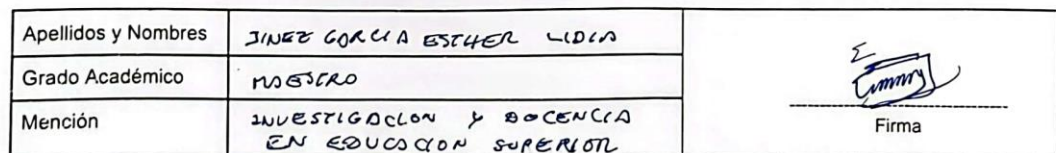 Apellidos y Nombres
JINEZ GARCIA ESTHER LIDIA
Grado Académico
MAESTRO
Mención
INVESTIGACION Y DOCENCIA
EN EDUCACION SUPERIOR
Firma